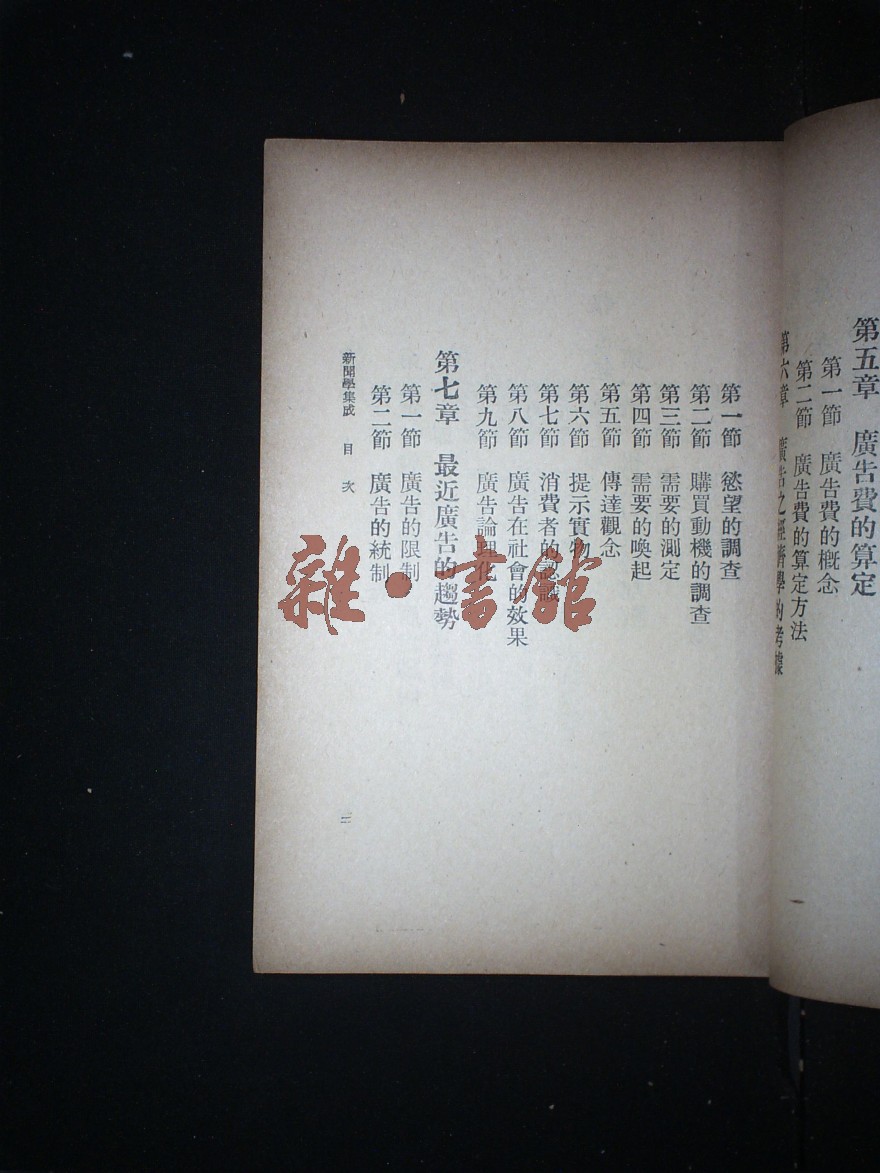 第五章　廣告費的算定
第一節　廣告費的概念
第二節　廣告費的算定方法
第六章　廣告之經濟學的考據
第一節　慾望的調查
第二節　購買動機的調查
第三節　需要的測定
第四節　需要的喚起
第五節　傳達觀念
第六節　提示實物
第七節　消費者的認識
第八節　廣告在社會的效果
第九節　廣告論理化
第七章　最近廣告的趨勢
第一節　廣告的限制
第二節　廣告的統制
新聞學集成　目次
二
雜·書館